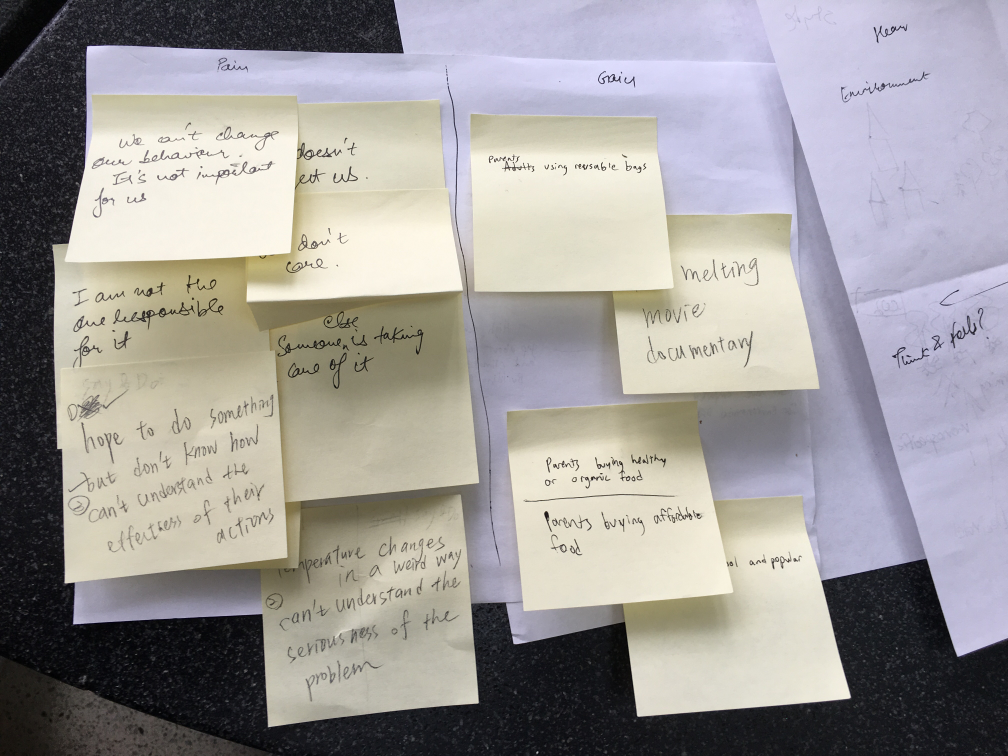 Pain
We can't change
our behaviour.
It's not important
for us
doesn't
us.
don't
care.
I am not the
one responsible
for it
else
Someone is taking
care of it
Say & Do
hope to do something
but don't know how
② can't understand the
effectness of their
actions
Temperature changes
in a weird way
② can't understand the
seriousness of the
problem
Gain
Parents
Adults using reusable bags
melting
movie
documentary
Parents buying healthy
or organic food
Parents buying affordable
food
and popular
Hear
Environment
Think & feels?